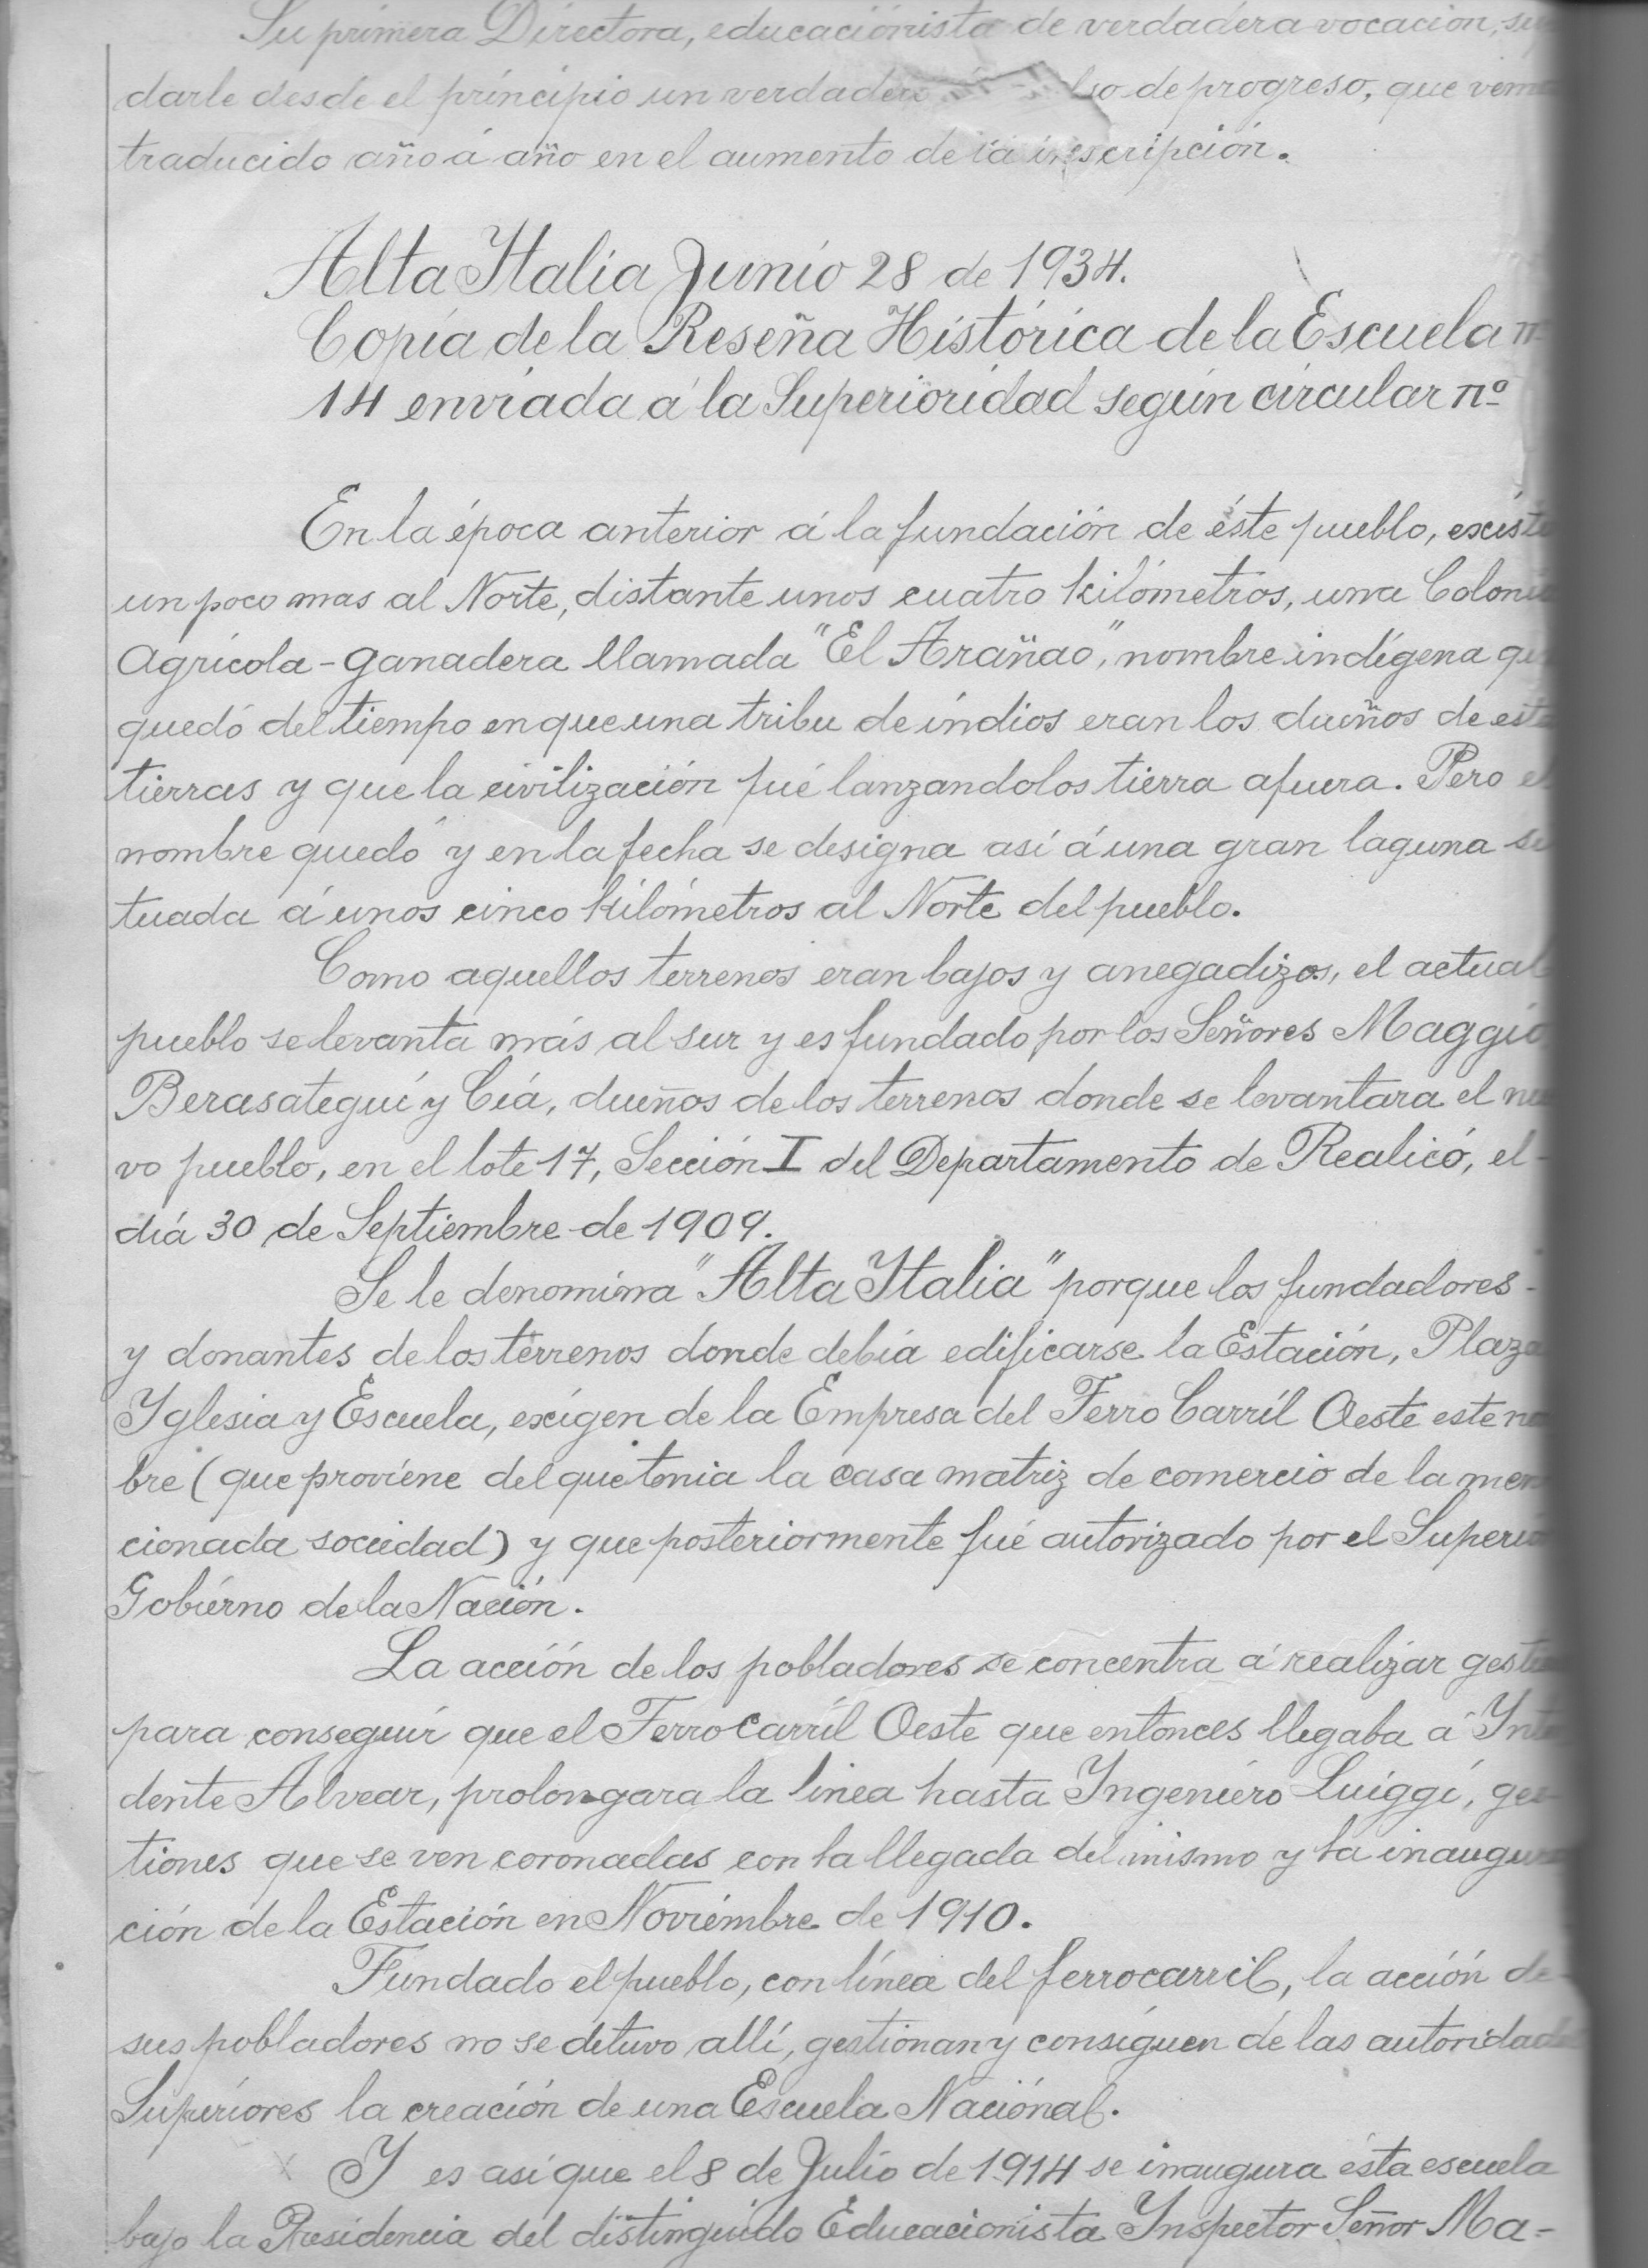 Su primera Directora, educaciónista de verdadera vocación, su
darle desde el principio un verdadero so de progreso, que vemo
traducido año á año en el aumento de la inscripción.
Alta Italia Junio 28 de 1934.
Copia de la Reseña Histórica de la Escuela nº
14 enviada á la Superioridad según circular nº
En la época anterior á la fundación de éste pueblo, existi
un poco mas al Norte, distante unos cuatro kilómetros, una Coloni
Agrícola-ganadera llamada "El Arañao", nombre indígena qu
quedó del tiempo en que una tribu de indios eran los dueños de est
tierras y que la civilización fué lanzandolos tierra afuera. Pero el
nombre quedó y en la fecha se designa así á una gran laguna si
tuada á unos cinco kilómetros al Norte del pueblo.
Como aquellos terrenos eran bajos y anegadizos, el actual
pueblo se levanta más al sur y es fundado por los Señores Maggio
Berasategui y Cía, dueños de los terrenos donde se levantara el nu
vo pueblo, en el lote 17, Sección I del Departamento de Realicó, el-
día 30 de Septiembre de 1909.
Se le denomina "Alta Italia" porque los fundadores-
y donantes de los terrenos donde debía edificarse la Estación, Plaza
Yglesia y Escuela, exigen de la Empresa del Ferro Carril Oeste este no
bre (que proviene del que tenia la casa matriz de comercio de la men
cionada sociedad) y que posteriormente fué autorizado por el Superio
Gobierno de la Nación.
La acción de los pobladores se concentra á realizar gestio
para conseguir que el Ferro Carril Oeste que entonces llegaba á Inte
dente Alvear, prolongara la linea hasta Yngeniero Luiggi, ges-
tiones que se ven coronadas con la llegada del mismo y la inaugura
ción de la Estación en Noviembre de 1910.
Fundado el pueblo, con línea del ferrocarril, la acción de
sus pobladores no se detuvo allí, gestionan y consiguen de las autoridade
Superiores la creación de una Escuela Naciónal.
Y es así que el 8 de Julio de 1914 se inaugura ésta escuela
bajo la Presidencia del distinguido Educacionista Ynspector Señor Ma-